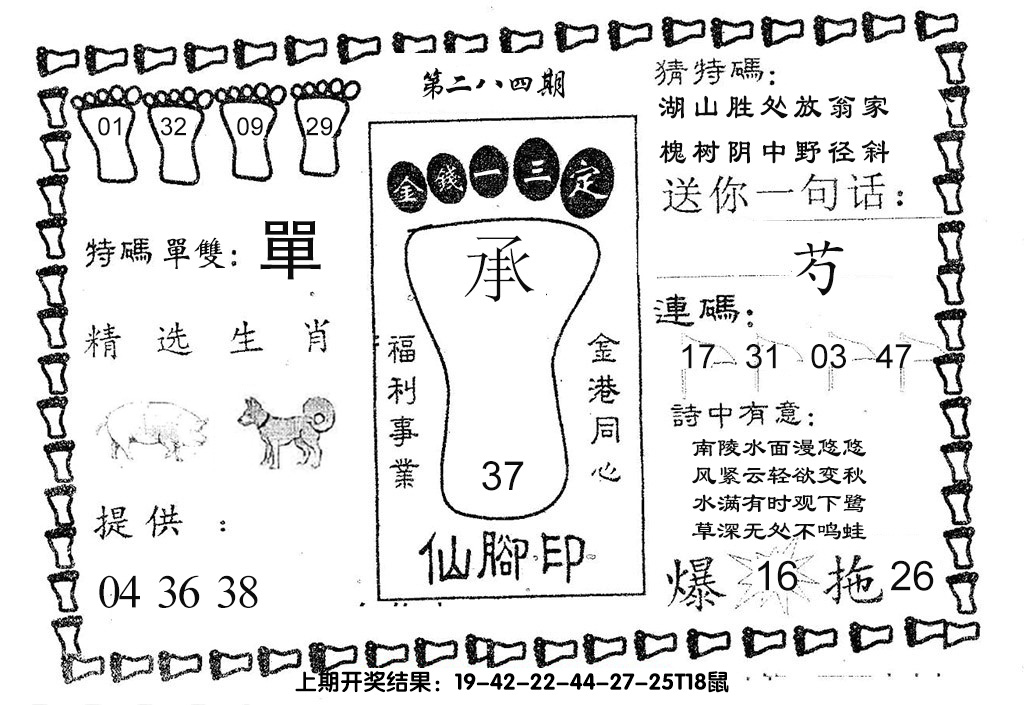 第二八四期
01 32 09 29
特碼單雙：單
精选生肖
提供：
04 36 38
金錢一三定
承
福利事業
金港同心
37
仙腳印
猜特碼：
湖山胜处放翁家
槐树阴中野径斜
送你一句话：
芍
連碼：
17 31 03 47
詩中有意：
南陵水面漫悠悠
风紧云轻欲变秋
水满有时观下鹭
草深无处不鸣蛙
爆 16 拖 26
上期开奖结果：19-42-22-44-27-25T18鼠